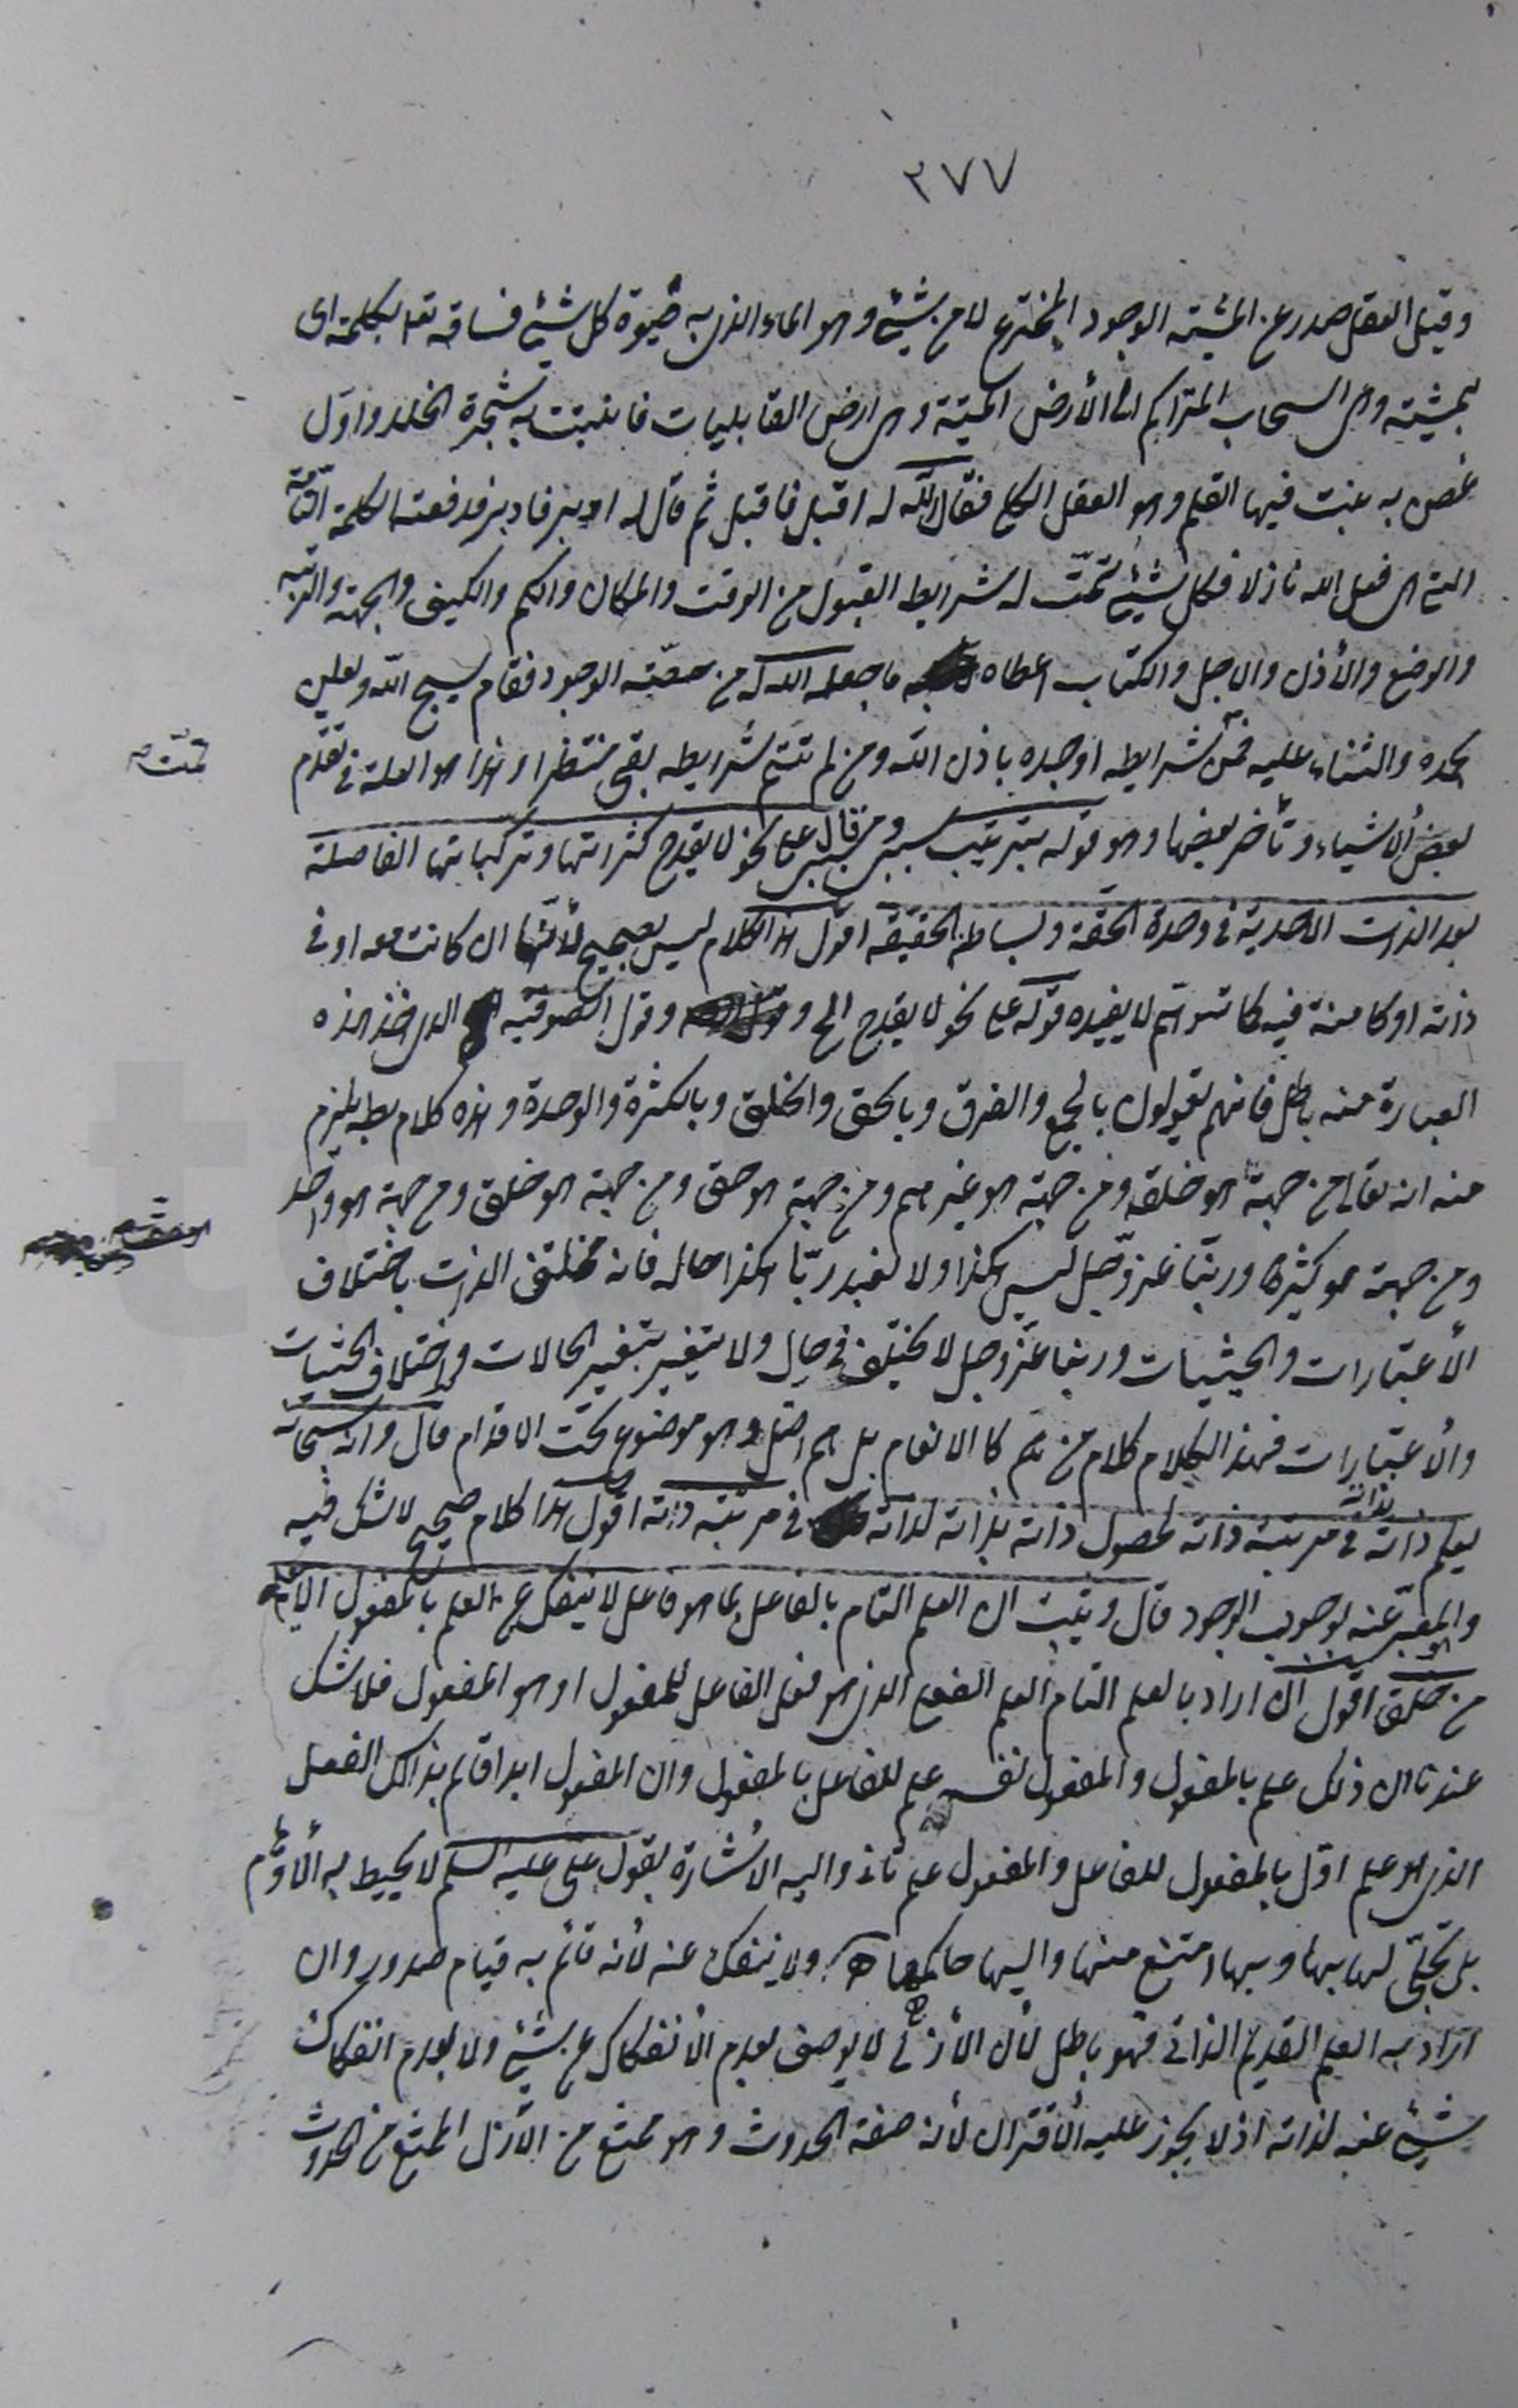 ٣٧٧
وقبل العقل صدر عن المشيته الوجود المخترع لا من شيئ وهو الماء الذى به حيوة كل شيئ فساقه تعا بكلمته اى
بمشيته وهى السحاب المتراكم الى الأرض الميتة وهى ارض القابليات فانبتت به شجرة الخلد واوّل
غصن به نبت فيها القلم وهو العقل الكلى فقال الله له اقبل فاقبل ثم قال له ادبر فادبر فدفعته الكلمة التامّة
التى هى فعل الله نازلا فكل شيئ تمّت له شرايط القبول من الوقت والمكان والكم والكيف والجهة والرتبه
والوضع والأذن والاجل والكتاب اعطاه ما جعله الله له من حصّته الوجود فقام يسبح الله ويعلن
بحمده والثناء عليه فمن شرايطه اوجده باذن الله ومن لم تتم شرايطه بقى منتظرا وهذا هو العلة فى تقدّم
تمّت
بعض الأشياء وتأخر بعضها وهو قوله بترتيب سببى ومسببى قال على نحو لا يقدح كثرتها وتركباتها الفاصلة
بعد الذات الاحدية فى وحدة الحقة وبساطة الحقيقه اقول هذا الكلام ليس بصحيح لأنّها ان كانت معه او فى
ذاته او كامنة فيه كما توهّم لا يفيده قوله على نحو لا يقدح الخ و وقول الصوفيّه الذى اخذ هذه
العبارة منه باطل فانهم يقولون بالجمع والفرق وبالحق والخلق وبالكثرة والوحدة وهذه كلام بط يلزم
منه انه تعالى من جهة هو خلقه ومن جهة هو غيرهم ومن جهة هو حق ومن جهة هو خلق ومن جهة هو واحد
ومن جهة هو كثير وربّنا عز وجل ليس هكذا ولا نعبد ربّا هكذا حاله فانه مختلف الذات باختلاف
الأعتبارات والحيثيات وربنا عزّ وجل لا يختلف فى حال ولا يتغير بتغير الحالات واختلاف الحيثيات
والأعتبارات فهذا الكلام كلام من هم كالانعام بل هم اضل وهو موضوع تحت الاقدام قال وانه سبحانه
يعلم ذاته بذاته فى مرتبة ذاته لحصول ذاته بذاته لذاته فى مرتبته ذاته اقول هذا كلام صحيح لا شك فيه
والمعبّر عنه بوجوب الوجود قال ويثبت ان العلم التام بالفاعل بما هو فاعل لا ينفك عن العلم بالمفعول
من خلق اقول ان اراد بالعلم التام العلم الفعلى الذى هو فعل الفاعل للمفعول او هو المفعول فلا شك
عندنا ان ذلك علم بالمفعول والمفعول نفسه علم للفاعل بالمفعول وان المفعول ابدا قائم بذلك الفعل
الذى هو علم اوّل بالمفعول للفاعل والمفعول علم ثان واليه الأشارة بقول على عليه السلم لا يحيط به الأوهام
بل تجلّى لها بها وبها امتنع منها واليها حاكمها ولا ينفك عنه لأنه قائم به قيام صدور وان
اراد به العلم القديم الذاتى فهو باطل لأن الأزلى لا يوصف بعدم الأنفكاك عن شيئ ولا بعدم انفكاك
شيئ عنه لذاته اذ لا يجوز عليه الأقتران لأنه صفة الحدوث وهو ممتنع من الأزل الممتنع من الحدوث